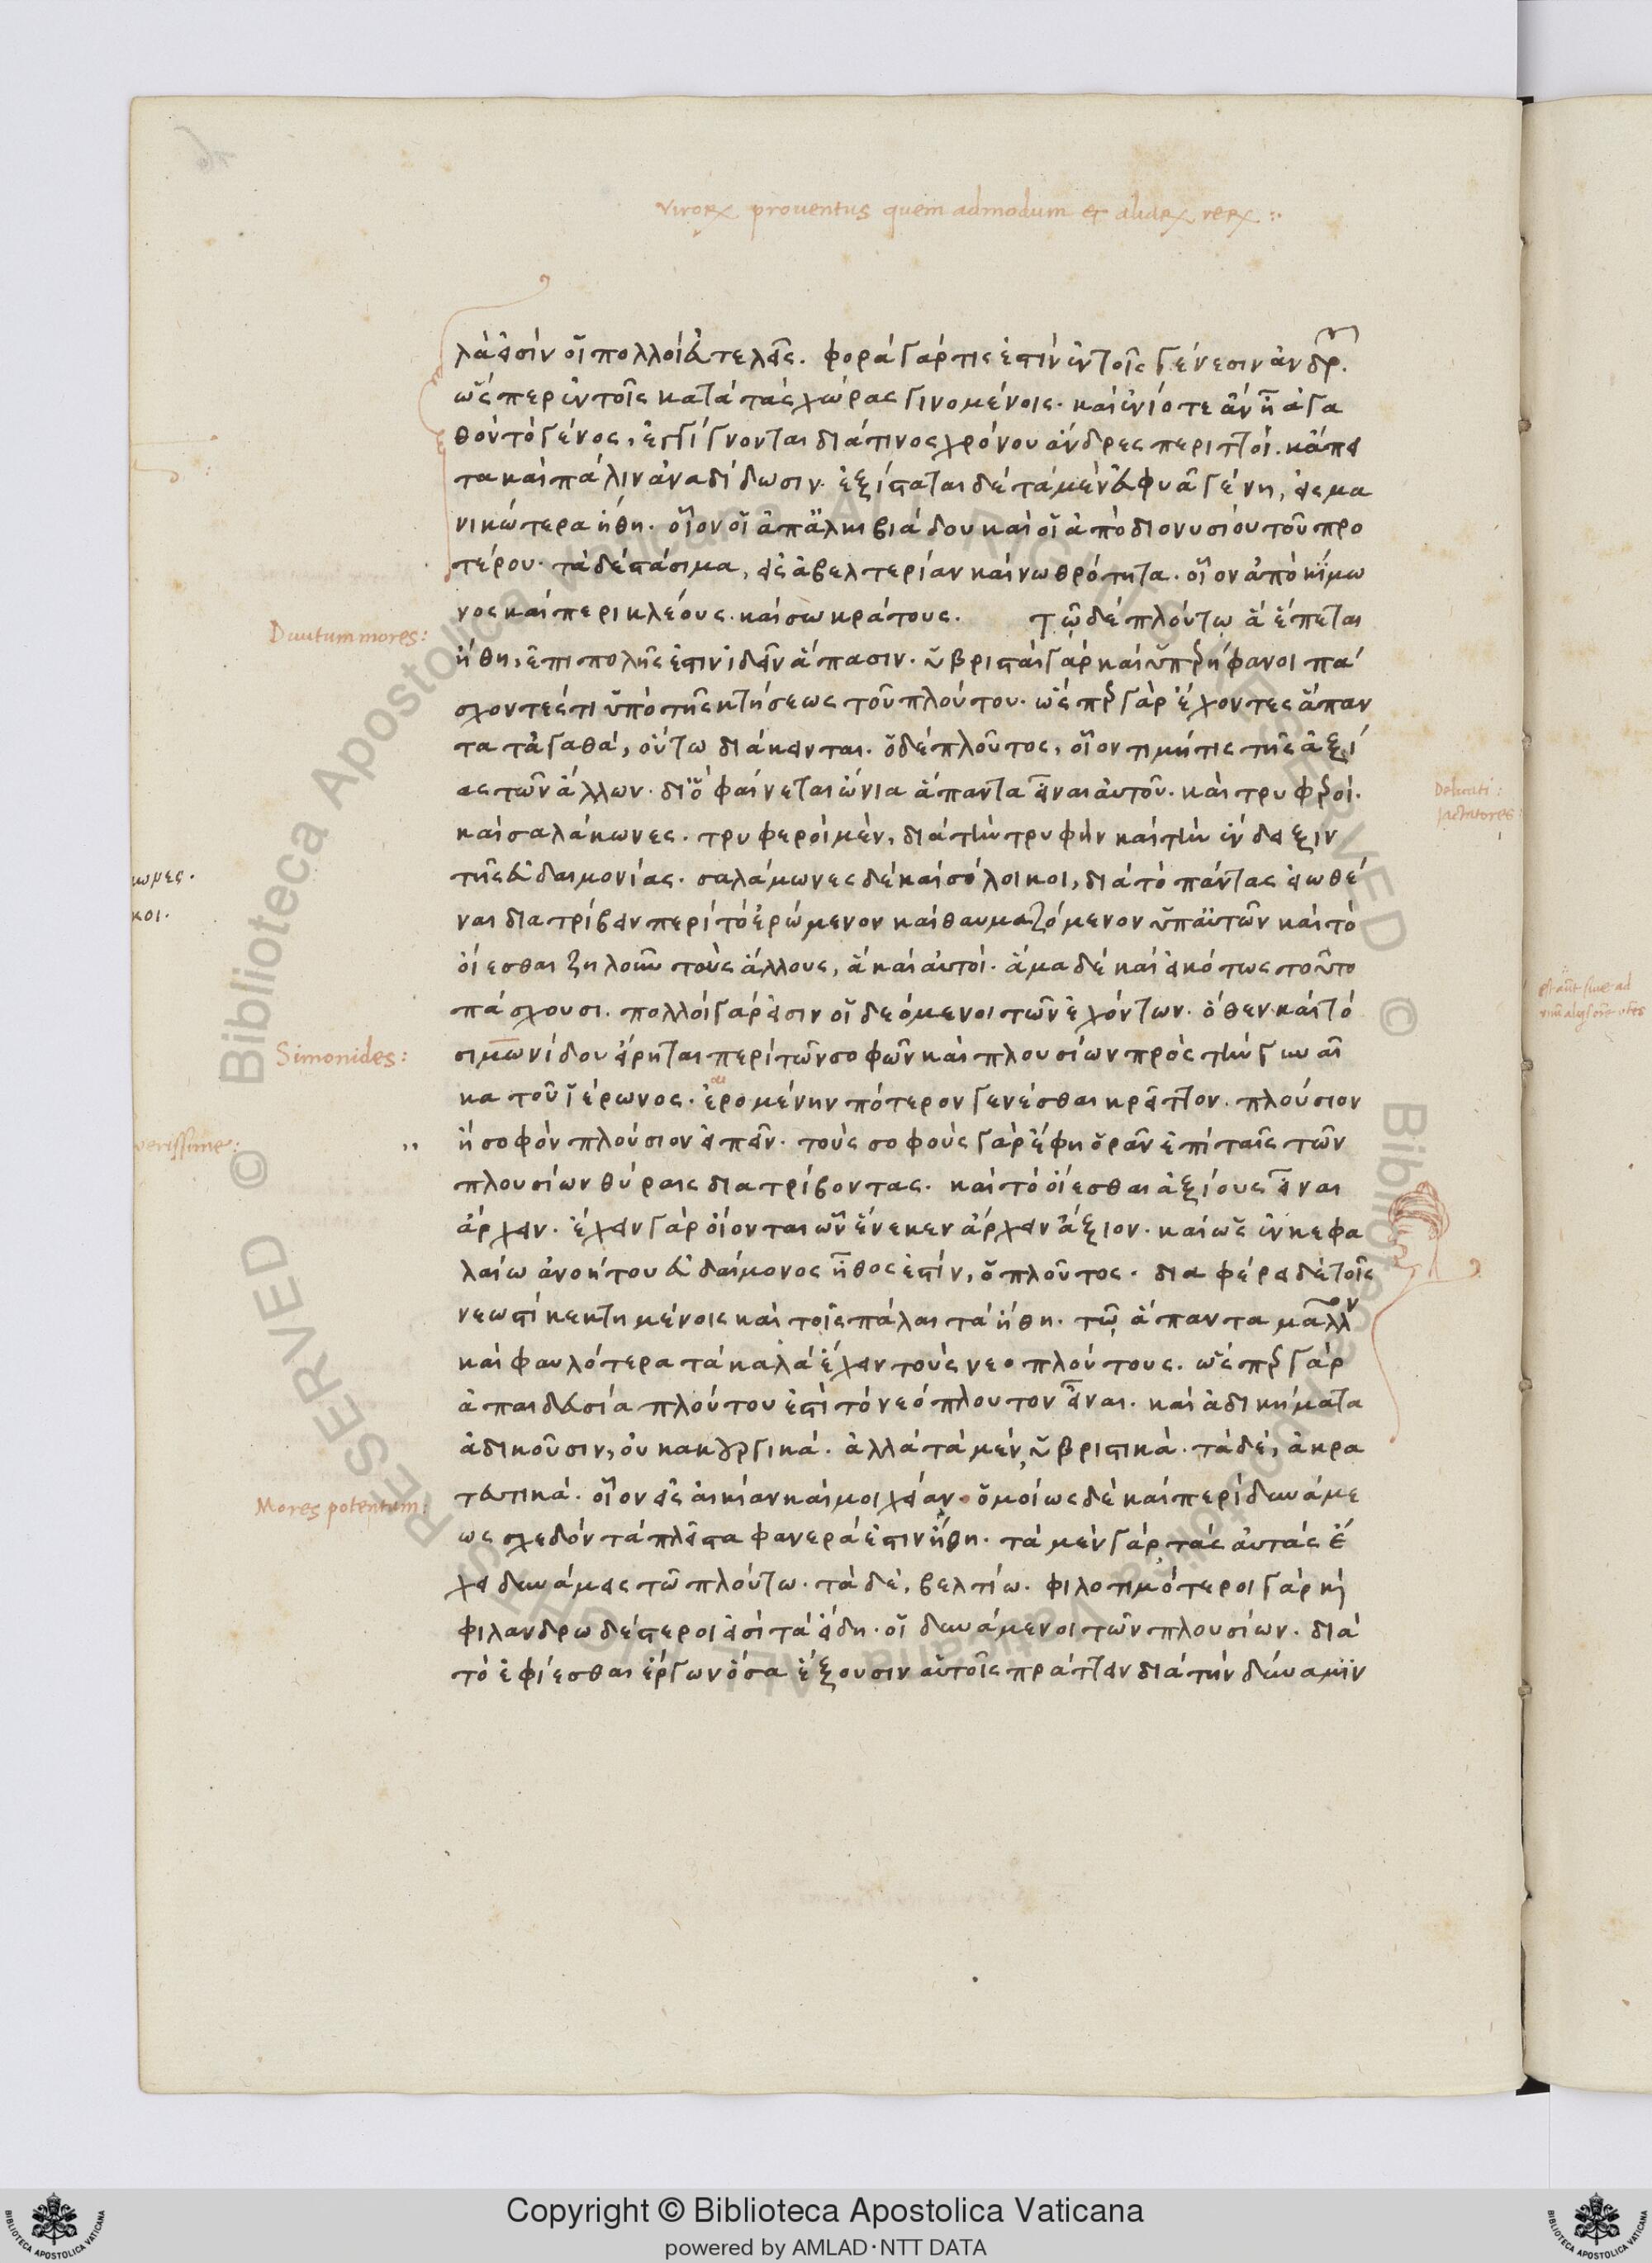 virorum proventus quem admodum et aliarum rerum :·
λὰ εἰσὶν οἱ πολλοὶ εὐτελεῖς. φορὰ γάρ τις ἐστὶν ἐν τοῖς γένεσιν ἀνδρῶν.
ὥσπερ ἐν τοῖς κατὰ τὰς χώρας γινομένοις. καὶ ἐνίοτε ἂν ᾖ ἀγα
θὸν τὸ γένος, ἐγγίγνονται διά τινος χρόνου ἄνδρες περιττοί. κἄπει
τα καὶ πάλιν ἀναδίδωσιν. ἐξίσταται δὲ τὰ μὲν εὐφυᾶ γένη, εἰς μα
νικώτερα ἤθη. οἷον οἱ ἀπ' ἀλκιβιάδου καὶ οἱ ἀπὸ διονυσίου τοῦ προ
τέρου. τὰ δὲ στάσιμα, εἰς ἀβελτερίαν καὶ νωθρότητα. οἷον ἀπὸ κίμω
νος καὶ περικλέους. καὶ σωκράτους. τῷ δὲ πλούτῳ ἃ ἕπεται
Divitum mores:
ἤθη, ἐπιπολῆς ἐστιν ἰδεῖν ἅπασιν. ὑβρισταὶ γὰρ καὶ ὑπερήφανοι πά
σχοντές τι ὑπὸ τῆς κτήσεως τοῦ πλούτου. ὥσπερ γὰρ ἔχοντες ἅπαν
τα τἀγαθά, οὕτω διάκεινται. ὁ δὲ πλοῦτος, οἷον τιμή τις τῆς ἀξί
ας τῶν ἄλλων. διὸ φαίνεται ὤνια ἅπαντα εἶναι αὐτοῦ. καὶ τρυφεροί.
Delicati:
Jactatores
καὶ σαλάκωνες. τρυφεροὶ μέν, διὰ τὴν τρυφὴν καὶ τὴν ἔνδειξιν
τῆς εὐδαιμονίας. σαλάκωνες δὲ καὶ σόλοικοι, διὰ τὸ πάντας εἰωθέ
ωνες.
κοι.
ναι διατρίβειν περὶ τὸ ἐρώμενον καὶ θαυμαζόμενον ὑπ' αὐτῶν καὶ τὸ
οἴεσθαι ζηλοῦν τοὺς ἄλλους, ἃ καὶ αὐτοί. ἅμα δὲ καὶ εἰκότως τοῦτο
πάσχουσι. πολλοὶ γάρ εἰσιν οἱ δεόμενοι τῶν ἐχόντων. ὅθεν καὶ τὸ
Simonides:
σιμωνίδου εἴρηται περὶ τῶν σοφῶν καὶ πλουσίων πρὸς τὴν γυναῖ
κα τοῦ ἱέρωνος. ἐρομένην πότερον γενέσθαι κρεῖττον. πλούσιον
verissime:
ἢ σοφὸν πλούσιον εἰπεῖν. τοὺς σοφοὺς γὰρ ἔφη ὁρᾶν ἐπὶ ταῖς τῶν
πλουσίων θύραις διατρίβοντας. καὶ τὸ οἴεσθαι ἀξίους εἶναι
ἄρχειν. ἔχειν γὰρ οἴονται ὧν ἕνεκεν ἄρχειν ἄξιον. καὶ ὡς ἐν κεφα
λαίω ἀνοήτου εὐδαίμονος ἦθος ἐστίν, ὁ πλοῦτος. διαφέρει δὲ τοῖς
νεωστὶ κεκτημένοις καὶ τοῖς πάλαι τὰ ἤθη. τῷ ἅπαντα μᾶλλον
καὶ φαυλότερα τὰ καλὰ ἔχειν τοὺς νεοπλούτους. ὥσπερ γὰρ
ἀπαιδευσία πλούτου ἐστὶ τὸ νεόπλουτον εἶναι. καὶ ἀδικήματα
ἀδικοῦσιν, οὐ κακουργικά. ἀλλὰ τὰ μέν, ὑβριστικά. τὰ δέ, ἀκρα
Mores potentum:
τευτικά. οἷον εἰς αἰκίαν καὶ μοιχείαν. ὁμοίως δὲ καὶ περὶ δυνάμε
ως σχεδὸν τὰ πλεῖστα φανερά ἐστιν ἤθη. τὰ μὲν γὰρ τὰς αὐτὰς ἔ
χει δυνάμεις τῶ πλούτω. τὰ δέ, βελτίω. φιλοτιμότεροι γὰρ καὶ
φιλανδρωδέστεροι εἰσὶ τὰ εἴδη. οἱ δυνάμενοι τῶν πλουσίων. διὰ
τὸ ἐφίεσθαι ἔργων ὅσα ἔξουσιν αὐτοῖς πράττειν διὰ τὴν δύναμιν
RESERVED © Biblioteca Apostolica Vaticana ALL RIGHTS RESERVED © Biblioteca Apostolica Vaticana ALL RIGHTS
Copyright © Biblioteca Apostolica Vaticana
powered by AMLAD·NTT DATA
BIBLIOTECA APOSTOLICA VATICANA
BIBLIOTECA APOSTOLICA VATICANA